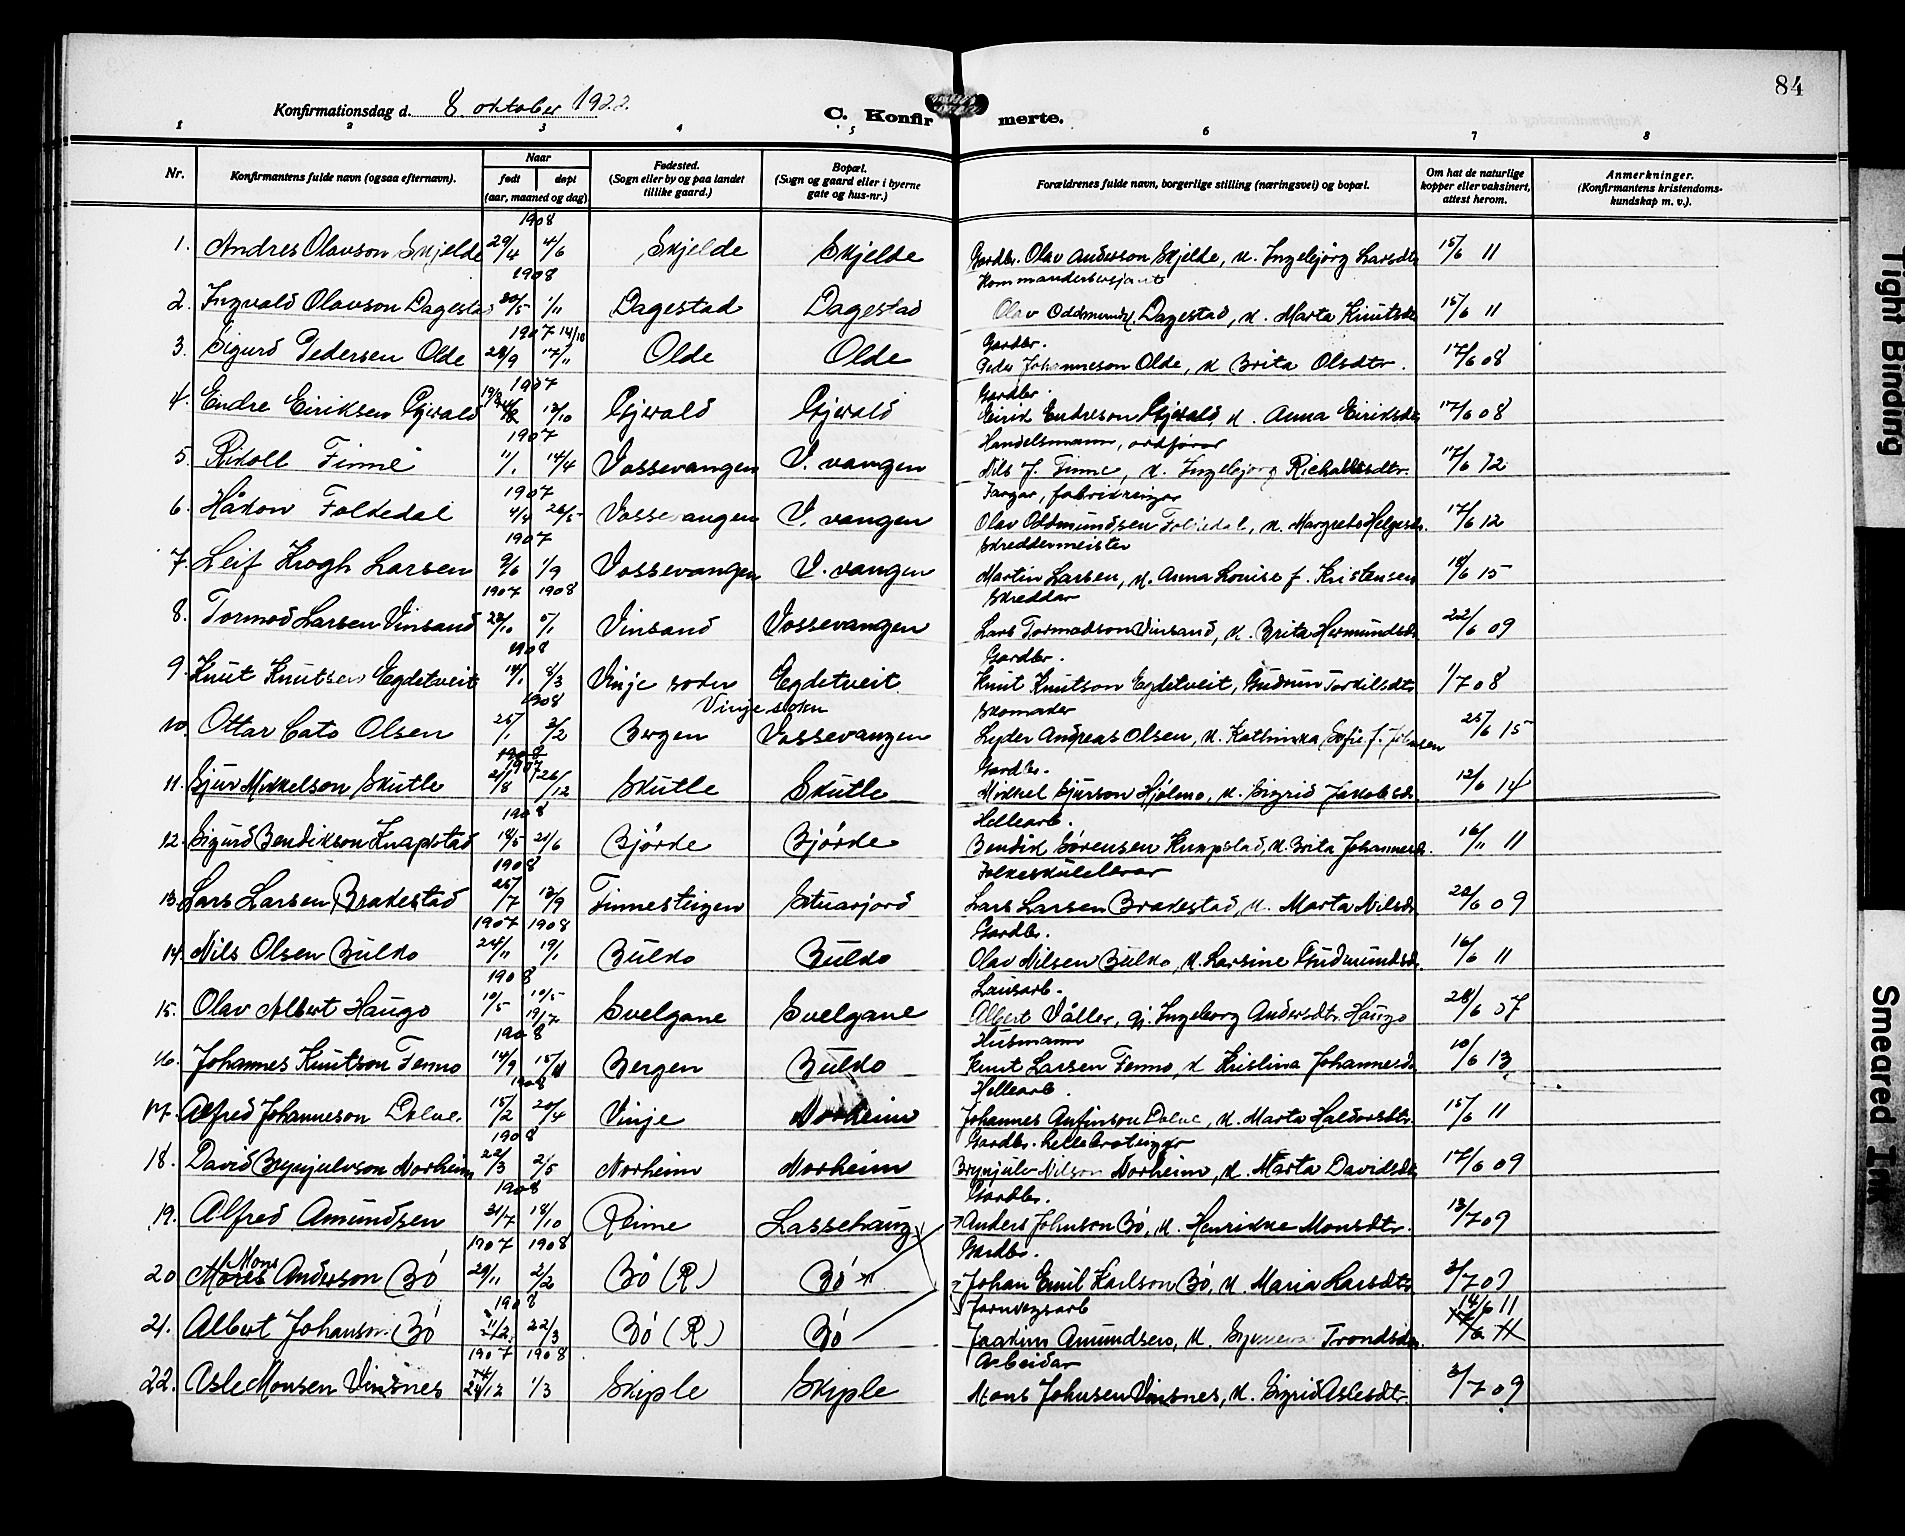 84
Konfirmationsdag d. 8 oktober 1922.
C. Konfirmerte.
1 2 3 4 5 6 7 8
Nr.
Konfirmantens fulde navn (ogsaa efternavn).
Naar
født døpt
(aar, maaned og dag)
Fødested.
(Sogn eller by og paa landet
tillike gaard.)
Bopæl.
(Sogn og gaard eller i byerne
gate og hus-nr.)
Forældrenes fulde navn, borgerlige stilling (næringsvei) og bopæl.
Om hat de naturlige
kopper eller vaksinert,
attest herom.
Anmerkninger.
(Konfirmantens kristendoms-
kundskap m. v.).
1908
1. Andres Olavson Skjelde 29/4 4/6 Skjelde Skjelde Gardbr. Olav Anderson Skjelde, k. Ingebjörg Larsdtr 15/6 11
1908 Kommandersersjant
2. Ingvald Olavson Dagestad 20/5 1/11 Dagestad Dagestad Olav Oddmunds. Dagestad, k. Marta Knutsdtr 15/6 11
1907 14/10 Gardbr.
3. Sigurd Pedersen Olde 28/9 17/11 Olde Olde Peder Johanneson Olde, k Brita Olsdtr. 17/6 08
1907 Gardbr
4. Endre Eiriksen Gjerald 13/10 Gjerald Gjerald Eirik Endreson Gjerald, k. Anna Eiriksdtr 17/6 08
1907 Handelsmann, ordförar
5. Rikoll Finne 11/1 14/4 Vossevangen V. vangen Nils J. Finne, k. Ingebjorg Richolfsdtr. 17/6 12
1907 Fargar, fabrikeigar
6. Håkon Foldedal 4/4 26/5 Vossevangen V. vangen Olav Oddmundsen Foldedal, k. Margreta Helgesdtr. 17/6 12
1907 Skreddermeister
7. Leif Krogh Larsen 9/6 1/9 Vossevangen V. vangen Martin Larsen, k. Anna Louise f. Kristensen 18/6 15
1907 1908 Skreddar
8. Tormod Larsen Vinsand 28/10 5/1 Vinsand Vossevangen Lars Tormodson Vinsand, k. Brita Hermundsdtr 22/6 09
1908 Gardbr.
9. Knut Knutsen Egdetveit 14/1 8/3 Vinje sokn Egdetveit Knut Knutson Egdetveit, Gudrun Torkilsdtr 1/7 08
1908 Vinje sokn Skomaker
10. Ottar Cato Olsen 25/1 2/2 Bergen Vossevangen Lyder Andreas Olsen, k. Kathinka Sofie f. Johnsen 25/6 15
1908
1907 Gardbr.
11. Sjur Mikkelson Skutle 21/8 26/12 Skutle Skutle Mikkel Sjurson Hjelmo, k. Sigrid Jakobsdtr. 12/6 14
1908 Hellearb.
12. Sigurd Bendikson Knapstad 18/5 21/6 Bjórde Bjórde Bendik Sørensen Knapstad, k. Brita Johannesdtr. 16/11 11
1908 Folkeskulelærar
13. Lars Larsen Brakestad 25/7 13/9 Finnesteigen Stuarjord Lars Larsen Brakestad, k. Marta Nilsdtr. 22/6 09
1907 1908 Gardbr.
14. Nils Olsen Bulko 24/11 19/1 Bulko Bulko Olav Nilsen Bulko, k. Larsine Gudmundsdtr. 16/6 11
1908 Lausarb.
15. Olav Albert Haugo 10/5 10/5 Svelgane Svelgane Albert Våller, gj. Ingeborg Andersdtr. Haugo 28/6 07
1908 19/7 Husmann
16. Johannes Knutson Fenno 14/9 Bergen Bulko Knut Larsen Fenno, k Kristina Johannesdtr 10/6 13
1908 Hellearb.
17. Alfred Johanneson Dolve. 15/2 20/4 Vinje Norheim Johannes Anfinson Dolve, k. Marta Haldorsdtr. 15/6 11
1908 Gardbr. hellebroteigar
18. David Brynjulvson Norheim 22/3 2/5 Norheim Norheim Brynjulv Nilson Norheim, k. Marta Davidsdtr 17/6 09
1908 Gardbr.
19. Alfred Amundsen 31/7 18/10 Reime Lassehaug Anders Johnson Bó, k. Henrikke Monsdtr. 13/7 09
1907 1908 Gardbr.
20 Mons Anderson Bó 29/11 2/2 Bó (R) Bó Johan Emil Karlson Bó, k. Maria Larsdtr 3/7 09
1908 Jarnvegsarb 14/6 11
21. Albert Johanson Bó 22/3 Bó (R) Bó Joakim Amundsen, k. Trondsdtr.
1907 1908 Arbeidar
22. Asle Monsen Vinsnes 24/12 1/3 Skiple Skiple Mons Johnsen Vinsnes, k. Sigrid Aslesdtr. 3/7 09
Tight Binding
Smeared Ink